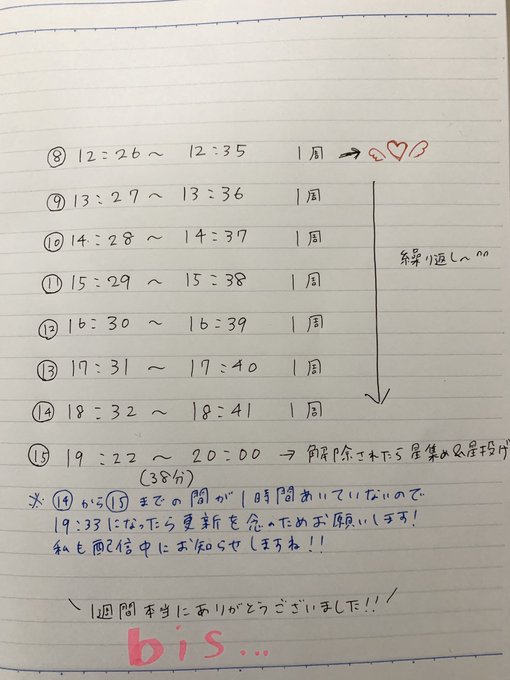 ⑧ 12:26～ 12:35 1周 →
⑨ 13:27～ 13:36 1周
⑩ 14:28～ 14:37 1周
⑪ 15:29～ 15:38 1周
繰り返し～^^
⑫ 16:30～ 16:39 1周
⑬ 17:31～ 17:40 1周
⑭ 18:32～ 18:41 1周
⑮ 19:22～ 20:00 → 解除されたら星集め&星投げ
(38分)
※ ⑭から⑮までの間が1時間あいていないので
19:33になったら更新を念のためお願いします!
私も配信中にお知らせしますね!!
\ 1週間本当にありがとうございました!! /
bis...